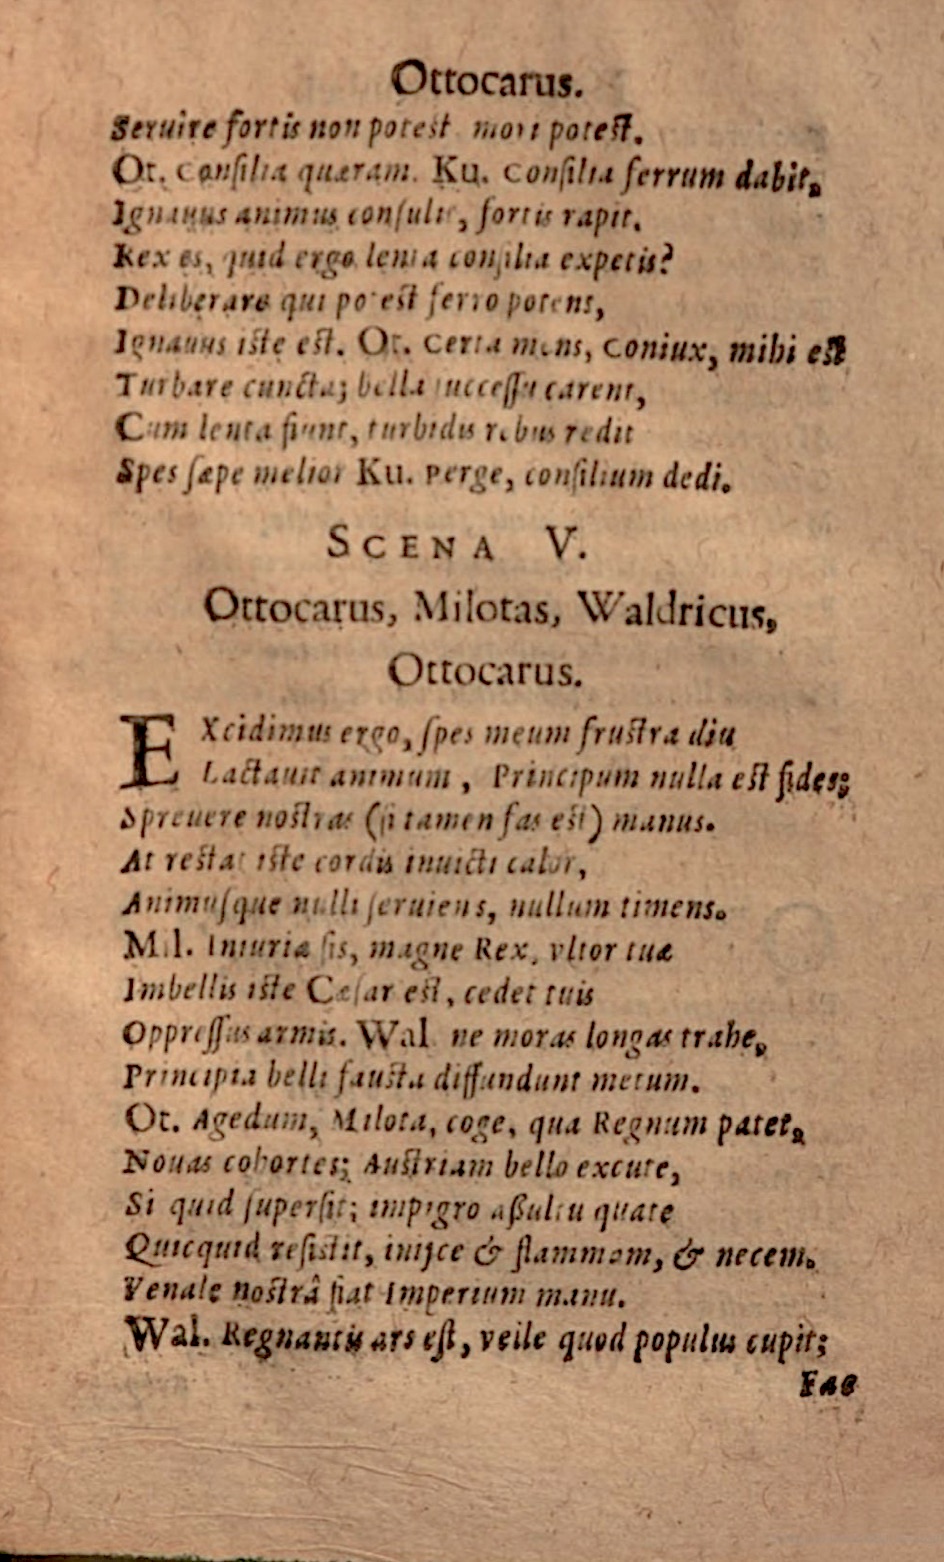 Ottocarus.
Seruire fortis non potest mori potest.
Ot. Consilia quæram. Ku. Consilia ferrum dabit,
Ignauus animus consulit, fortis rapit.
Rex es, quid ergo lenta consilia expetis?
Deliberare qui potest ferro potens,
Ignauus iste est. Ot. Certa mens, Coniux, mihi est
Turbare cuncta; bella successu carent,
Cum lenta fiunt, turbidis rebus redit
Spes sæpe melior Ku. Perge, consilium dedi.
SCENA V.
Ottocarus, Milotas, Waldricus,
Ottocarus.
EXcidimus ergo, spes meum frustra diu
Lactauit animum, Principum nulla est fides;
Spreuere nostras (si tamen fas est) manus.
At restat iste cordis inuicti calor,
Animusque nulli seruiens, nullum timens.
Mil. Iniuriæ sis, magne Rex, vltor tuæ
Imbellis iste Cæsar est, cedet tuis
Oppressus armis. Wal ne moras longas trahe,
Principia belli fausta diffundunt metum.
Ot. Agedum, Milota, coge, qua Regnum patet,
Nouas cohortes; Austriam bello excute,
Si quid supersit; impigro aßultu quate
Quicquid resistit, inijce & flammam, & necem.
Venale nostrâ fiat Imperium manu.
Wal. Regnantis ars est, velle quod populus cupit;
Fac